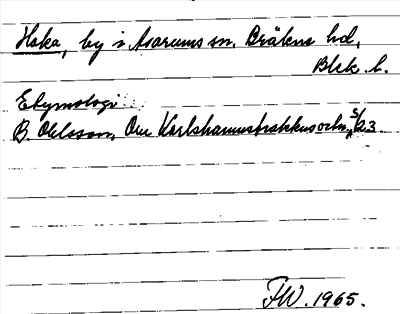 Hoka, by i Asarums sn. Bräkne hd,
Blek. l.
Etymologi:
B. Olsson, Om Karlshamnstrakten och s. 23
FW. 1965.